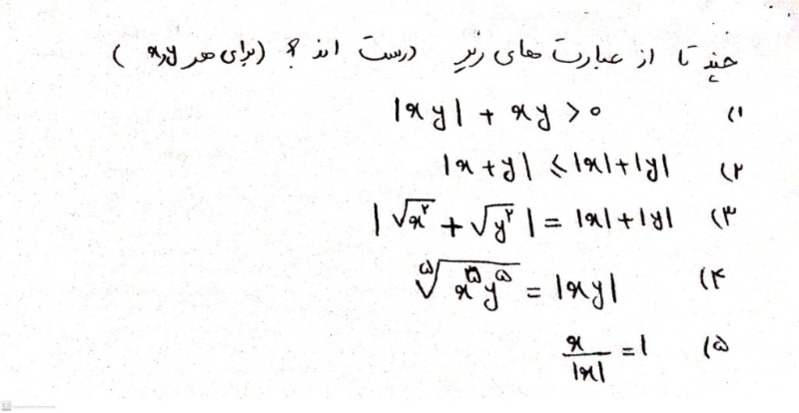 چند تا از عبارت های زیر درست اند ؟ (برای هر x,y)
۱) |xy| + xy > ۰
۲) |x+y| ≤ |x|+|y|
۳) |√x^۲ + √y^۲| = |x|+|y|
۴) ⁵√x^۵y^۵ = |xy|
۵) x/|x| = ۱